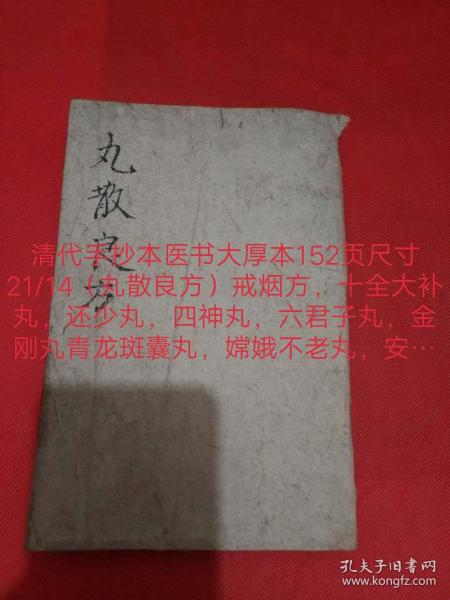 丸散良方
清代手抄本医书大厚本152页尺寸
21/14（丸散良方）戒烟方，十全大补
丸，还少丸，四神丸，六君子丸，金
刚丸青龙斑囊丸，嫦娥不老丸，安…
孔夫子旧书网
www.kongfz.com